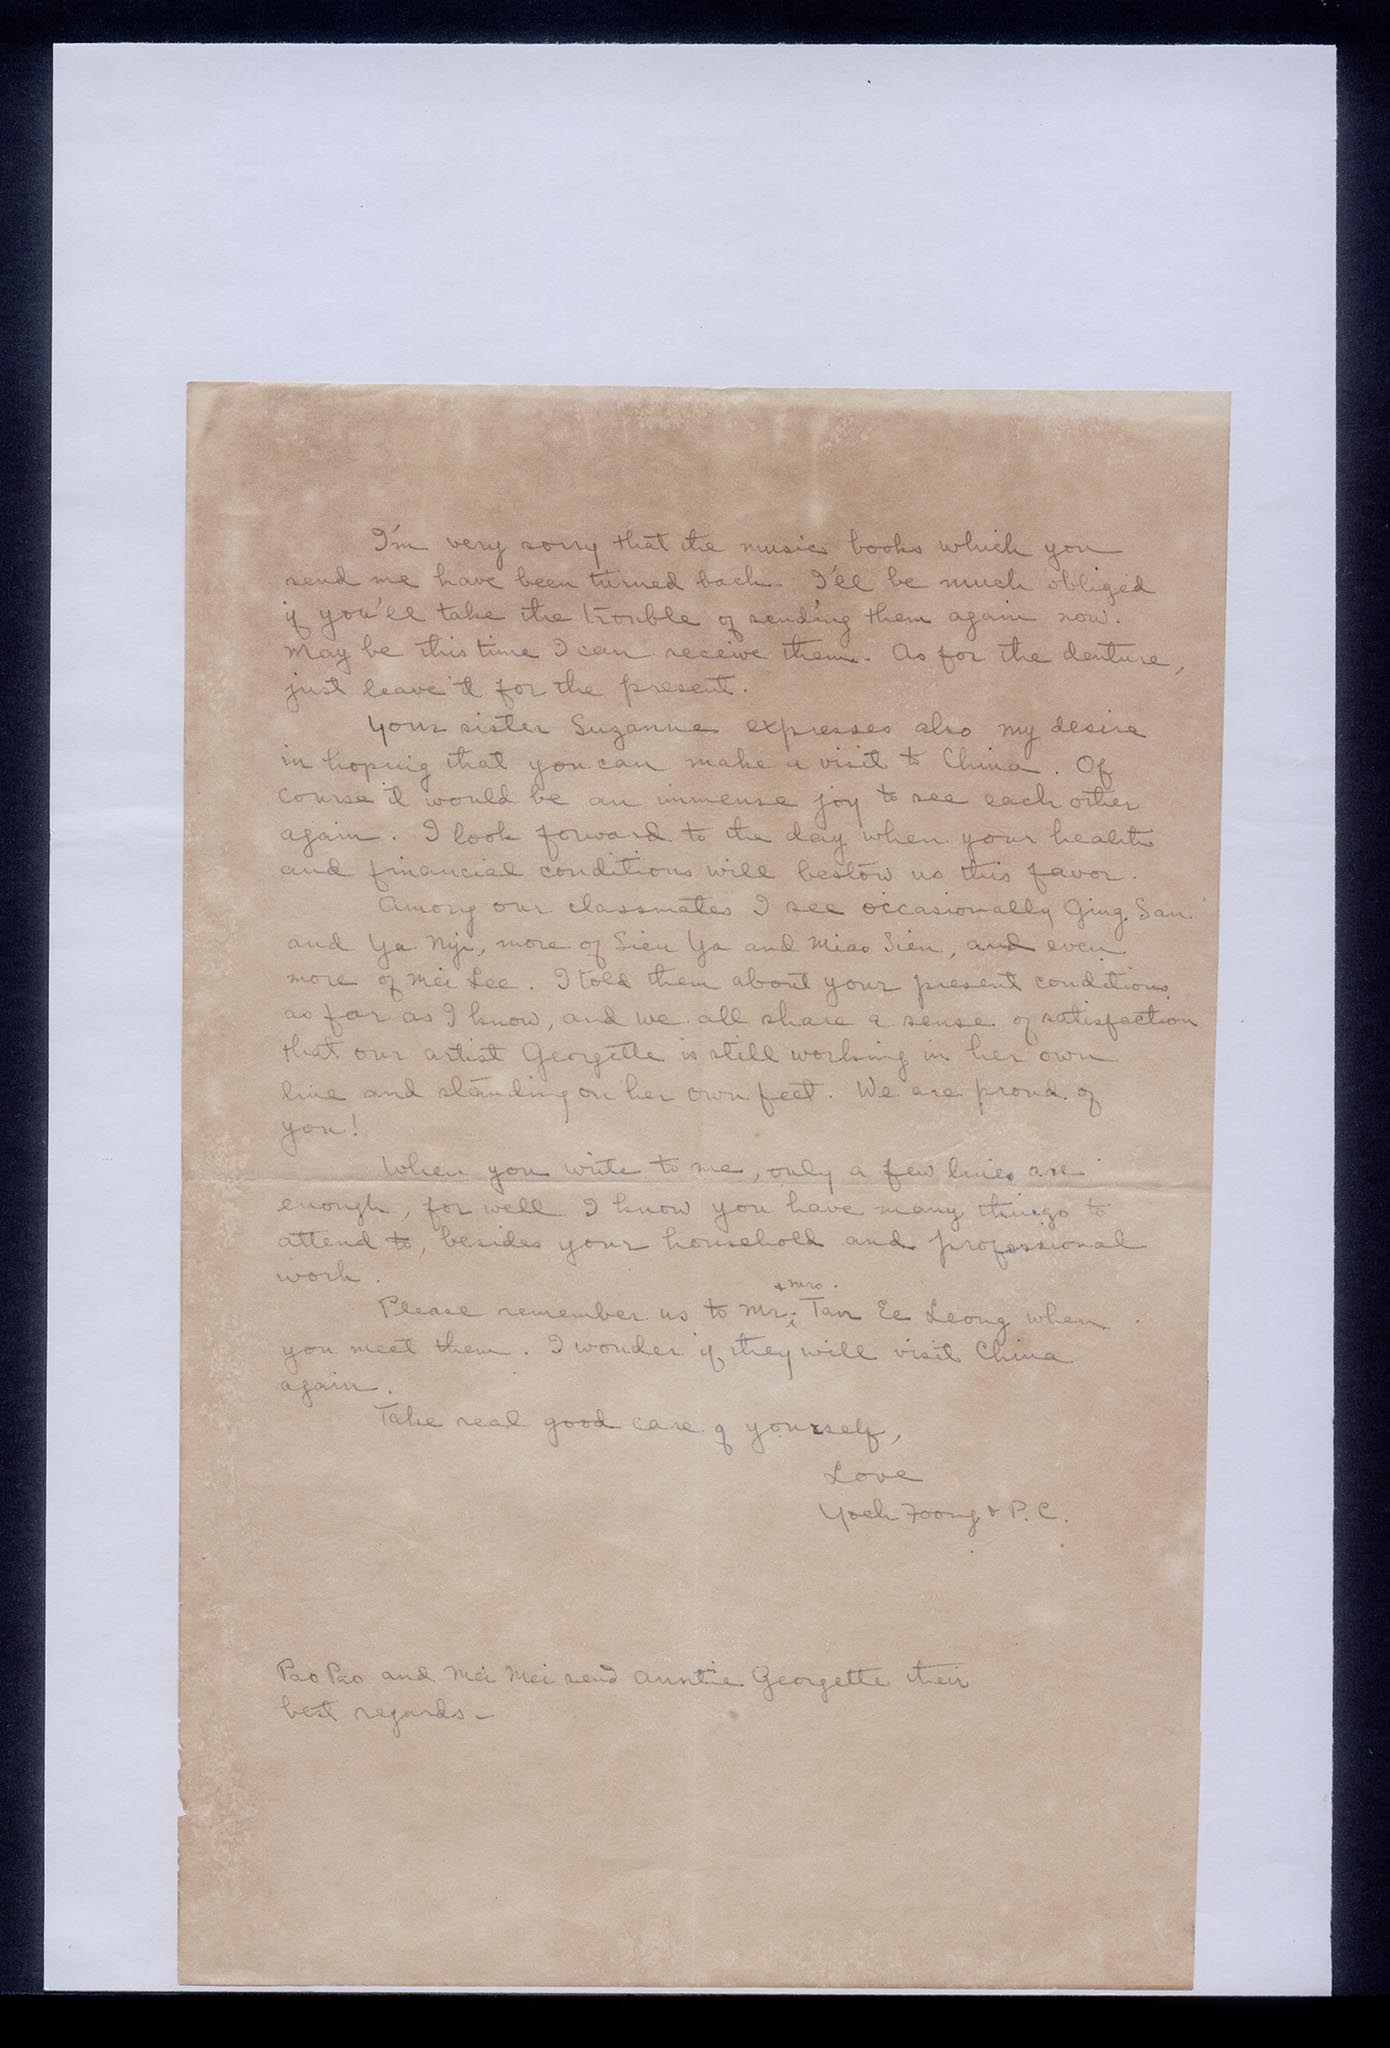 I'm very sorry that the music books which you
send me have been turned back. I'll be much obliged
if you'll take the trouble of sending them again now.
May be this time I can receive them. As for the denture,
just leave it for the present.
Your sister Suzanne expresses also my desire
in hoping that you can make a visit to China. Of
course it would be an immense joy to see each other
again. I look forward to the day when your health
and financial conditions will bestow us this favor.
Among our classmates I see occasionally Ging San
and Ya Nyi, more of Sieu Ya and Miao Sien, and even
more of Mei Lee. I told them about your present conditions
as far as I know, and we all share a sense of satisfaction
that our artist Georgette is still working in her own
line and standing on her own feet. We are proud of
you!
When you write to me, only a few lines are
enough, for well I know you have many things to
attend to, besides your household and professional
work.
Please remember us to Mr. & Mrs. Tan Ee Leong when
you meet them. I wonder if they will visit China
again.
Take real good care of yourself,
Love
Yoeh Foong & P. C.
Pao Pao and Mei Mei send Auntie Georgette their
best regards-